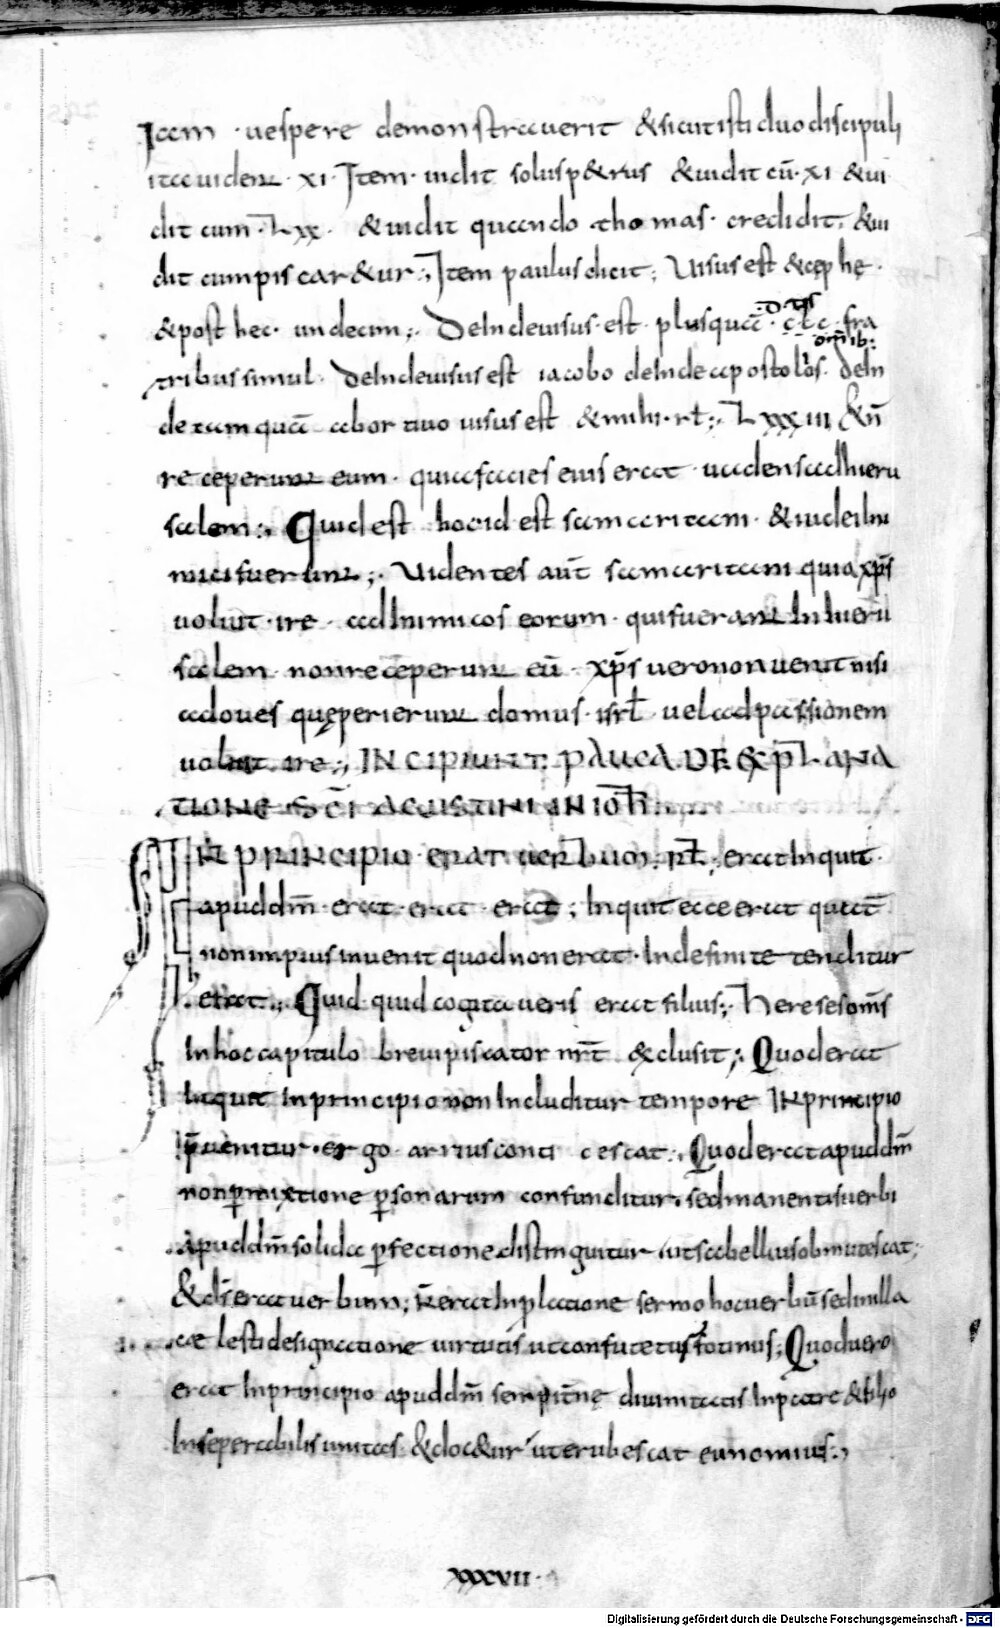 Iam · uespere demonstrauerit &sicut isti duo discipuli
ita uident · xi · Item · uidit solus p&rus &uidit cū · xi · &ui
dit cum · Lxx · &uidit quando · thomas · credidit, &ui
dit cum piscar&ur ;, Item paulus dicit ; Uisus est &cęphę ·
&post hec · undecim ;, Deinde uisus · est · plus quā · fra
omīb:
tribus simul · Deinde uisus est iacobo deinde apostolos · Dein
de tamquā abortiuo uisus est &mihi · rł ;, Lxxxiii &ñ
receperunt eum · quia facies eius erat · uadens ad hieru
salem ;, Quid est hoc id · est samaritani · &iudei ini
mici fuerunt ;, Uidentes aūt samaritani quia xp̄s
uoluit · ire · ad inimicos eorum · qui fuerant in hieru
salem · non receperunt eū · xp̄s uero non uenit nisi
ad oues quę perierunt domus · isrł · uel ad passionem
uoluit · ire ;, INCIPIUNT PAUCA DE EXPLANA
TIONE SC̄I AGUSTINI IN IOH̄
IN PRINCIPIO ERAT UERBUM ; RŁ ;, erat inquit ·
apud dm̄ · erat · erat · erat ; Inquit ecce erat quat̄
non impius inuenit quod non erat · Indefinite tenditur
erat ;, Quid quid cogitaueris erat filius ;, Hereses om̄s
In hoc capitulo breui piscator nr̄t &clusit ;, Quod erat
Inquit In principio non Includitur tempore IN principio
p̄uenitur · ergo arrius conti cescat ;, Quod erat apud dm̄
non p̱mixtione p̱sonarum confunditur · sed manentis uerbi
apud dm̄ solida p̱fectione distinguitur ut sabellius obmutescat ;
&dś erat uerbum ; Ñ erat In p̱latione sermo hoc uerbū sed in illa
cælesti designatione uirtutis ut confutetus fotinus ; Quod uero
erat In principio apud dm̄ sempit̄nę diuinitatis In patre &filio
Inseperabilis unitas · &doc&ur ut erubescat eunomius ;,
xxxvii ·
Digitalisierung gefördert durch die Deutsche Forschungsgemeinschaft - DFG